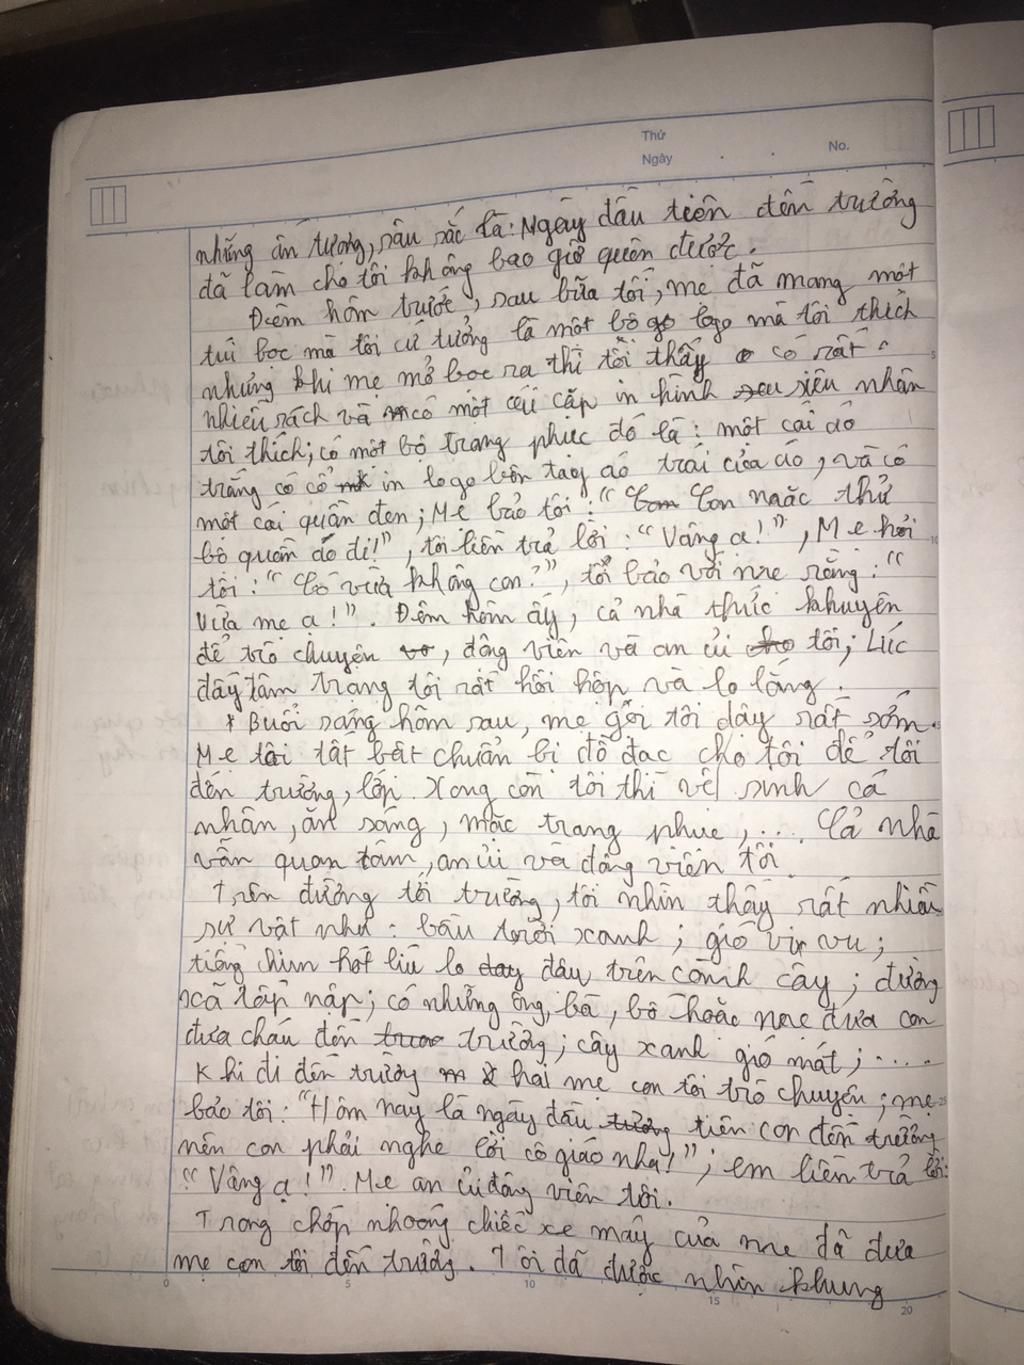 Thứ
Ngày . . No.
những ấn tượng, sâu sắc là: Ngày đầu tiên đến trường
đã làm cho tôi không bao giờ quên được.
Đêm hôm trước, sau bữa tối, mẹ đã mang một
túi bọc mà tôi cứ tưởng là một bộ go lego mà tôi thích
nhưng khi mẹ mở bọc ra thì tôi thấy có rất
nhiều sách và có một cái cặp in hình sieu siêu nhân
tôi thích; có một bộ trang phục đó là: một cái áo
trắng có cổ in logo bên tay áo trái của áo, và có
một cái quần đen; Mẹ bảo tôi: “Con Con mặc thử
bộ quần áo đi!”, tôi liền trả lời: “Vâng ạ!”, Mẹ hỏi
tôi: “Có vừa không con?”, tôi bảo với mẹ rằng: “
Vừa mẹ ạ!”. Đêm hôm ấy, cả nhà thức khuyên
để trò chuyện vo, động viên và an ủi cho tôi; Lúc
đấy tâm trạng tôi rất hồi hộp và lo lắng.
* Buổi sáng hôm sau, mẹ gọi tôi dậy rất sớm.
Mẹ tôi tất bật chuẩn bị đồ đạc cho tôi để tôi
đến trường, lớp. Xong còn tôi thì vệ sinh cá
nhân, ăn sáng, mặc trang phục, .... Cả nhà
vẫn quan tâm, an ủi và động viên tôi.
Trên đường tới trường, tôi nhìn thấy rất nhiều
sự vật như: bầu trời xanh; gió vi vu;
tiếng chim hót líu lo day đâu trên cành cây; đường
xá tấp nập; có những ông, bà, bố hoặc mẹ đưa con
đưa cháu đến truo trường; cây xanh gió mát; .....
Khi đi đến trường hai mẹ con tôi trò chuyện; mẹ
bảo tôi: “Hôm nay là ngày đầu trường tiên con đến trường
nên con phải nghe lời cô giáo nha!”; em liền trả lời:
“Vâng ạ!”. Mẹ an ủi động viên tôi.
Trong chớp nhoong chiếc xe máy của mẹ đã đưa
mẹ con tôi đến trường. Tôi đã được nhìn khung
0 5 10 15 20